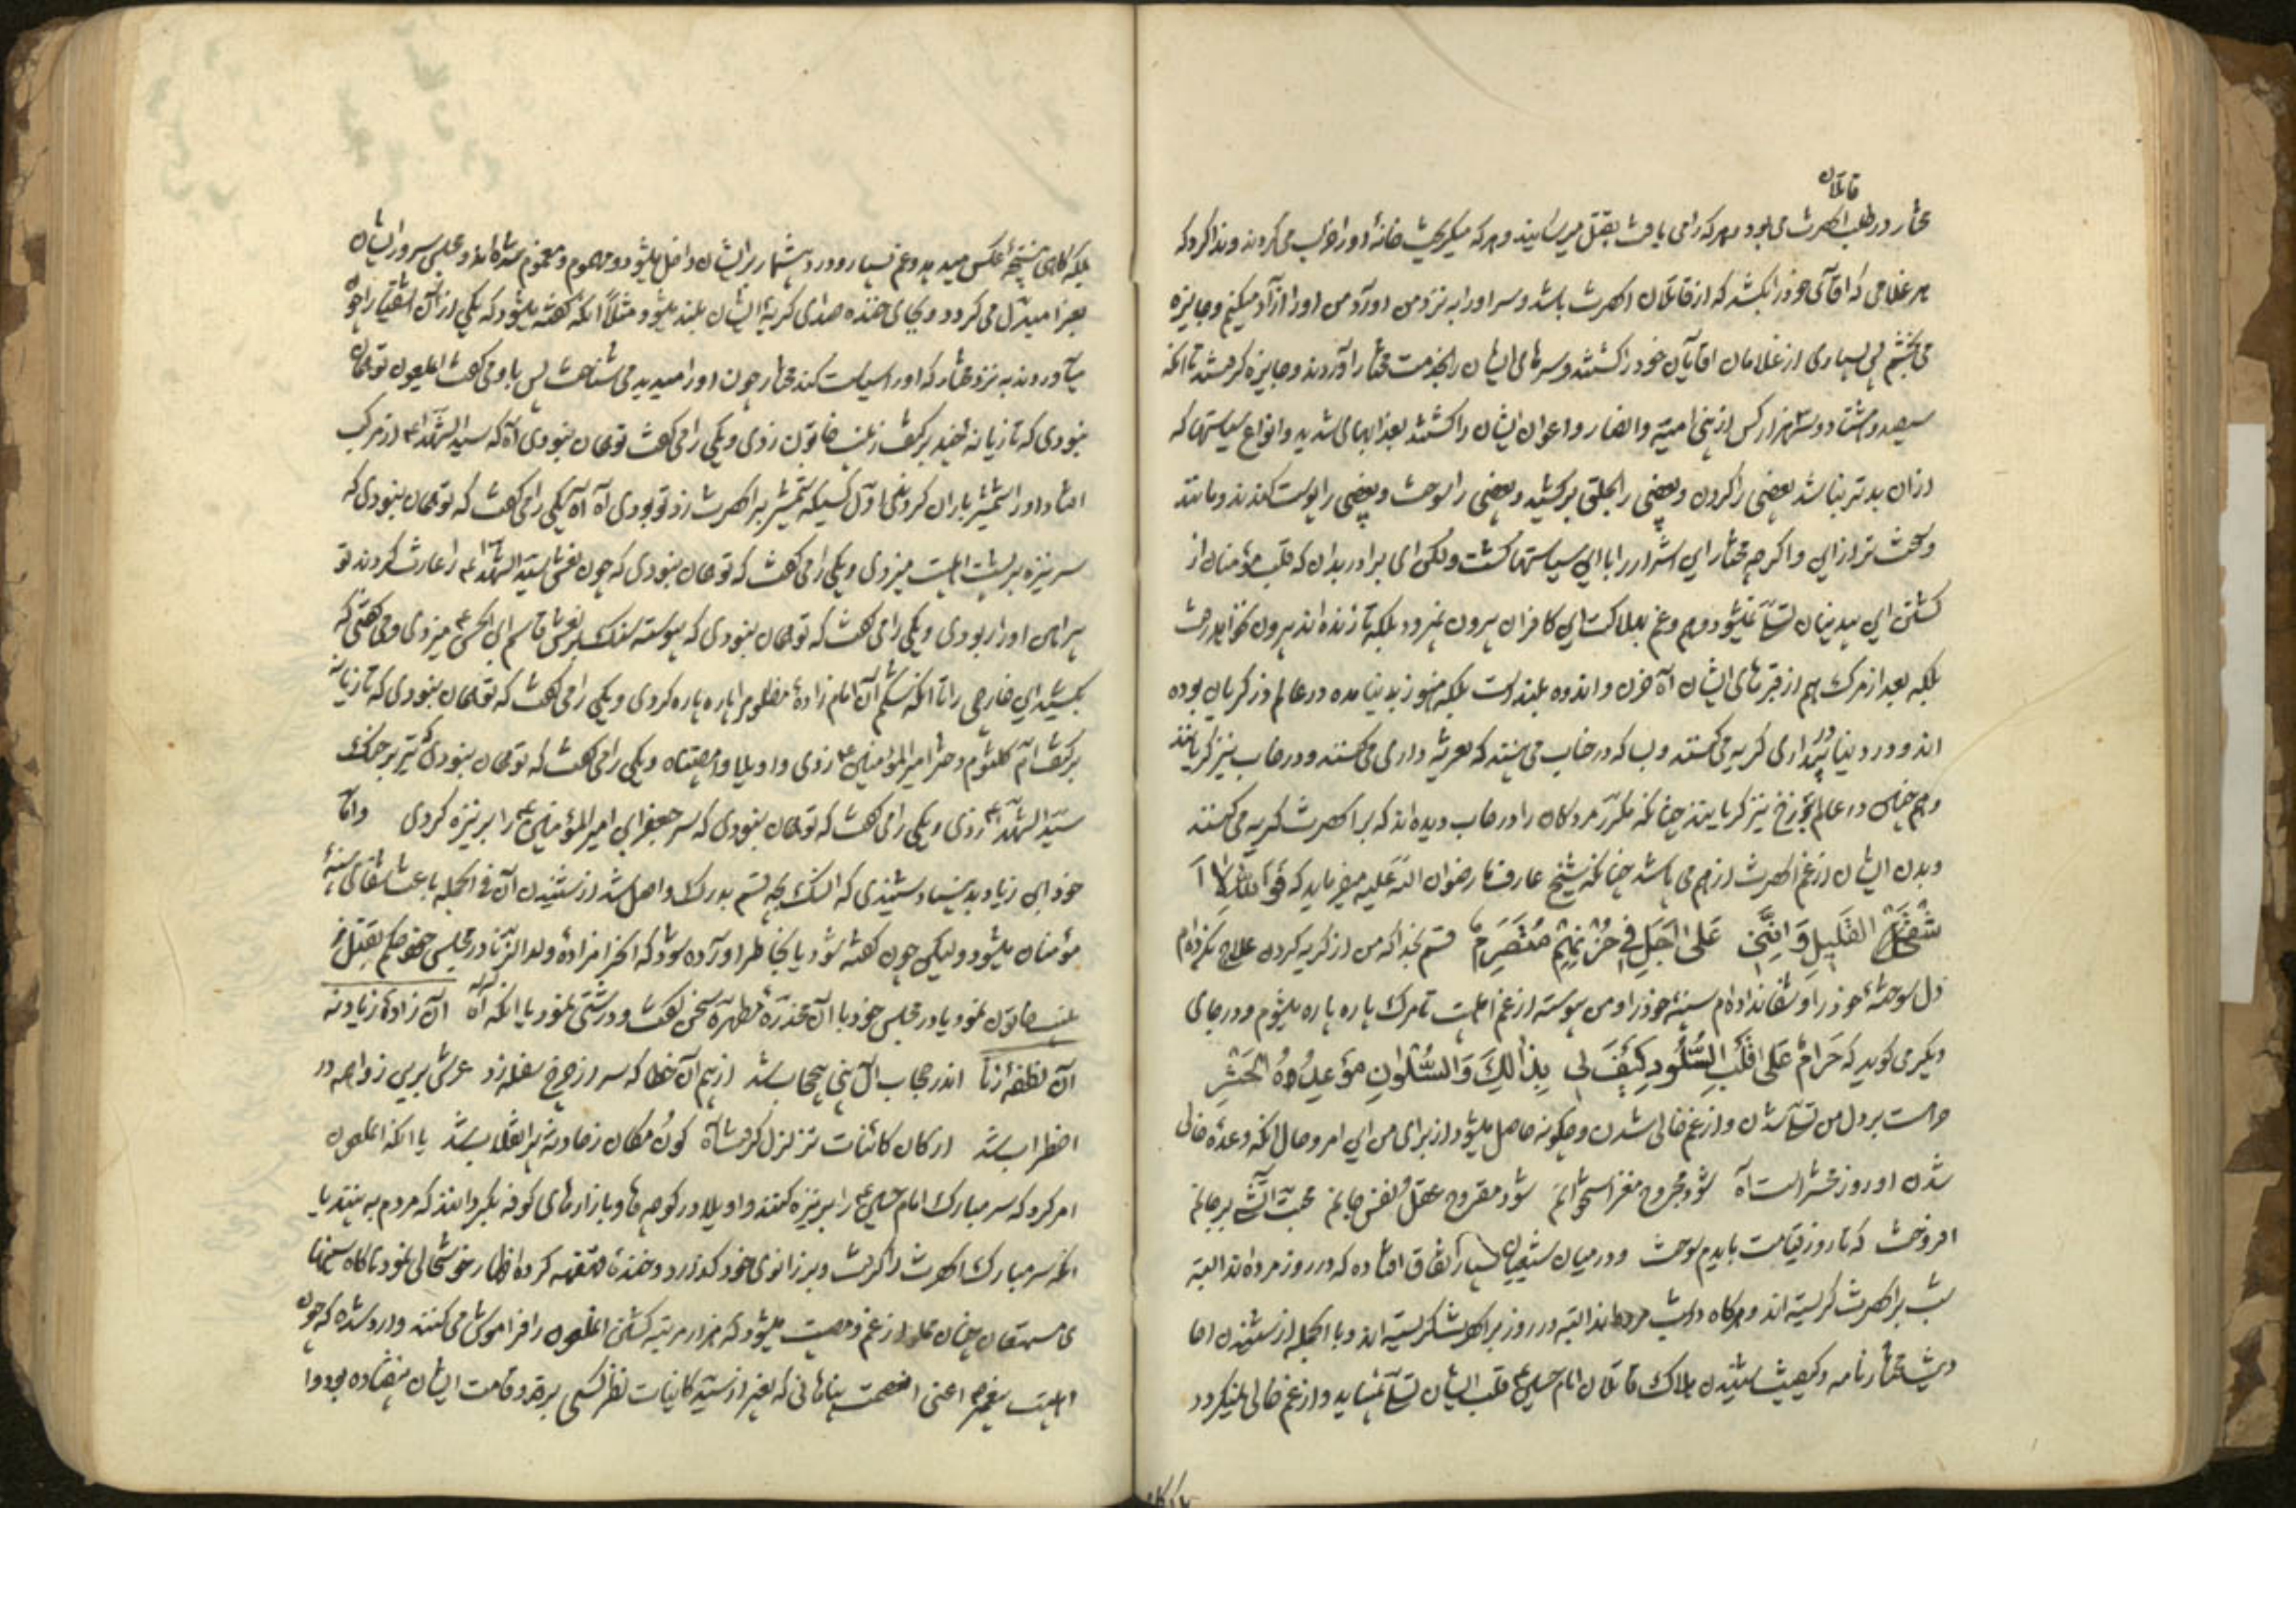 قاتلان
مختار در طلب آنحضرت می بود و هر که را می یافت بقتل میرسانید و هر که میگریخت خانهٔ او را خراب می کردند و ندا کرد که
هر غلامی که آقای خود را بکشد که از قاتلان آنحضرت باشد و سر او را به نزد من آورد من او را آزاد میکنم و جایزه
می بخشم پس بسیاری از غلامان آقایان خود را کشتند و سرهای ایشان را بخدمت مختار آوردند و جایزه گرفتند تا آنکه
سیصد و هشتاد و سه هزار کس از بنی امیه و انصار و اعوان ایشان را کشتند بعذابهای شدید و انواع سیاستها که
از آن بدتر نباشد بعضی را گردن و بعضی را بحلق برکشید و بعضی را سوخت و بعضی را پوست کندند و مانند
و سخت تر از این و اگر چه مختار این اشرار را با این سیاستها کشت و لکن ای برادر بدان که قلب مؤمنان از
کشتن این بیدینان تسلی نمیشود و هم و غم بهلاکت این کافران بیرون نمیرود بلکه تا زنده اند بیرون نخواهد رفت
بلکه بعد از مرگ هم از قبرهای ایشان آه حزن و اندوه بلند است بلکه هنوز بدنیا نامده در عالم ذر گریان بوده
اند و در دنیا در بیداری گریه می کنند و بسا که در خواب می بینند که تعزیه داری می کنند و در خواب نیز گریانند
و هم چنین در عالم برزخ نیز گریانند چنانکه مکرر مردگان را در خواب دیده اند که بر آنحضرت گریه می کنند
و بدن ایشان از غم آنحضرت از هم می پاشد چنانکه شیخ عارف ما رضوان الله علیه میفرماید که فَوَاللهِ لَا
شَفَیْتُ الغَلِیلَ وَ اِنَّنِی عَلی اَجَلٍ فِی حُزْنِهِمْ مُتَصَرِّم قسم بخدا که من از گریه کردن علاج نکرده ام
دل سوختهٔ خود را و شفا نداده ام سینهٔ خود را و من پیوسته از غم اهلبیت تا مرگ پاره پاره میشوم و در جای
دیگر می گوید که حَرَامٌ عَلی قَلْبِی السُّلُو کَیْفَ لِی بِذَالِکَ وَالسُّلْوَانِ مَوْعِدُهُ الْحَشْرِ
حرامست بر دل من تسلی شدن و از غم خالی شدن و چگونه حاصل میشود از برای من این امر و حال آنکه وعدهٔ خالی
شدن او روز محشر است آه شود مجروح مغز استخوانم شود مقروح عقل و نفس جانم محبت آتشی بر جانم
افروخت که تا روز قیامت بایدم سوخت و در میان شیعیان بسیار اتفاق افتاده که در روز مرده اند البته
شب بر آنحضرت گریسته اند و هرگاه در شب مرده اند البته در روز بر آنحضرت گریسته اند و با الجمله از شنیدن
مختار نامه و کیفیت شنیدن هلاک قاتلان امام حسین ع قلب ایشان تسلی نمییابد و از غم خالی نمیگردد
بلکه گاهی نتیجهٔ عکس میدهد و غم بسیار و درد بیشمار بر ایشان داخل میشود و مهموم و مغموم شده اند و مجلس سرور ایشان
بعزا مبدل می گردد و بجای خنده صدای گریهٔ ایشان بلند میشود مثلاً آنکه گفته میشود که یکی از آن اشقیا را چون
می آوردند به نزد مختار که او را سیاست کند مختار چون او را میدید می شناخت پس با و می گفت ای ملعون تو همان
نبودی که تازیانه چند بر کتف زینب خاتون زدی و یکی را می گفت تو همان نبودی آه که سید الشهدا ع از مرکب
افتاد او را شمشیر باران کردند اول کسیکه شمشیر بر آنحضرت زد تو بودی آه آه یکی را می گفت که تو همان نبودی که
سر نیزه بر پشت اهلبیت میزدی و یکی را می گفت که تو همان نبودی که چون نعش سید الشهدا ع را غارت کردند تو
پیراهن او را ربودی و یکی را می گفت که تو همان نبودی که پیوسته سنگ بر نعش قاسم ابن الحسن ع میزدی و می گفتی که
بکشید این خارجی را تا آنکه شکم آن امام زادهٔ مظلوم را پاره پاره کردی و یکی را می گفت که تو همان نبودی که تازیانه
بر کتف ام کلثوم دختر امیر المؤمنین ع زدی وا ویلا وا مصیبتاه و یکی را می گفت که تو همان نبودی که تیر بر
سید الشهدا ع زدی و یکی را می گفت که تو همان نبودی که سر جعفر ابن امیر المؤمنین ع را بر نیزه کردی و اما
خود ابن زیاد بد بنیاد شنیدی که آن سگ بچه قسم بدرک واصل شد از شنیدن آن فی الجمله باعث شفای سینهٔ
مؤمنان میشود ولیکن چون گفته شود یا بخاطر آورده شود که آن حرامزادهٔ ولد الزنا در مجلس خود حکم بقتل
زینب خاتون نمود یا در مجلس خود با آن مخدرهٔ مطهره سخن گفت و درشتی نمود یا آنکه آه آن زادهٔ زیاد نه
آن نطفهٔ زنا اندر حجاب آل نبی بیحجاب شد از بیم آن خطا که سر از چرخ سفله زد عرش برین ز واهمه در
اضطراب شد ارکان کائنات تزلزل گرفت آه کون و مکان ز حادثه پر انقلاب شد یا آنکه آن ملعون
امر کرد که سر مبارک امام حسین ع را بر نیزه کنند وا ویلا در کوچه ها و بازارهای کوفه بگردانند که مردم به بینند یا
آنکه سر مبارک آنحضرت را گرفت و بر زانوی خود گذارد و خندهٔ قهقهه کرده اظهار خوشحالی نمود ناگاه سخنان
مستمعان چنان مملو از غم و مصیبت میشود که هزار مرتبه کشتن آن ملعون را فراموش می کنند و وارد شده که چون
اهلبیت پیغمبر ص اعنی آن عصمت پناهانی که بغیر از سید کاینات نظر کسی بر قد و قامت ایشان نیفتاده بود وا